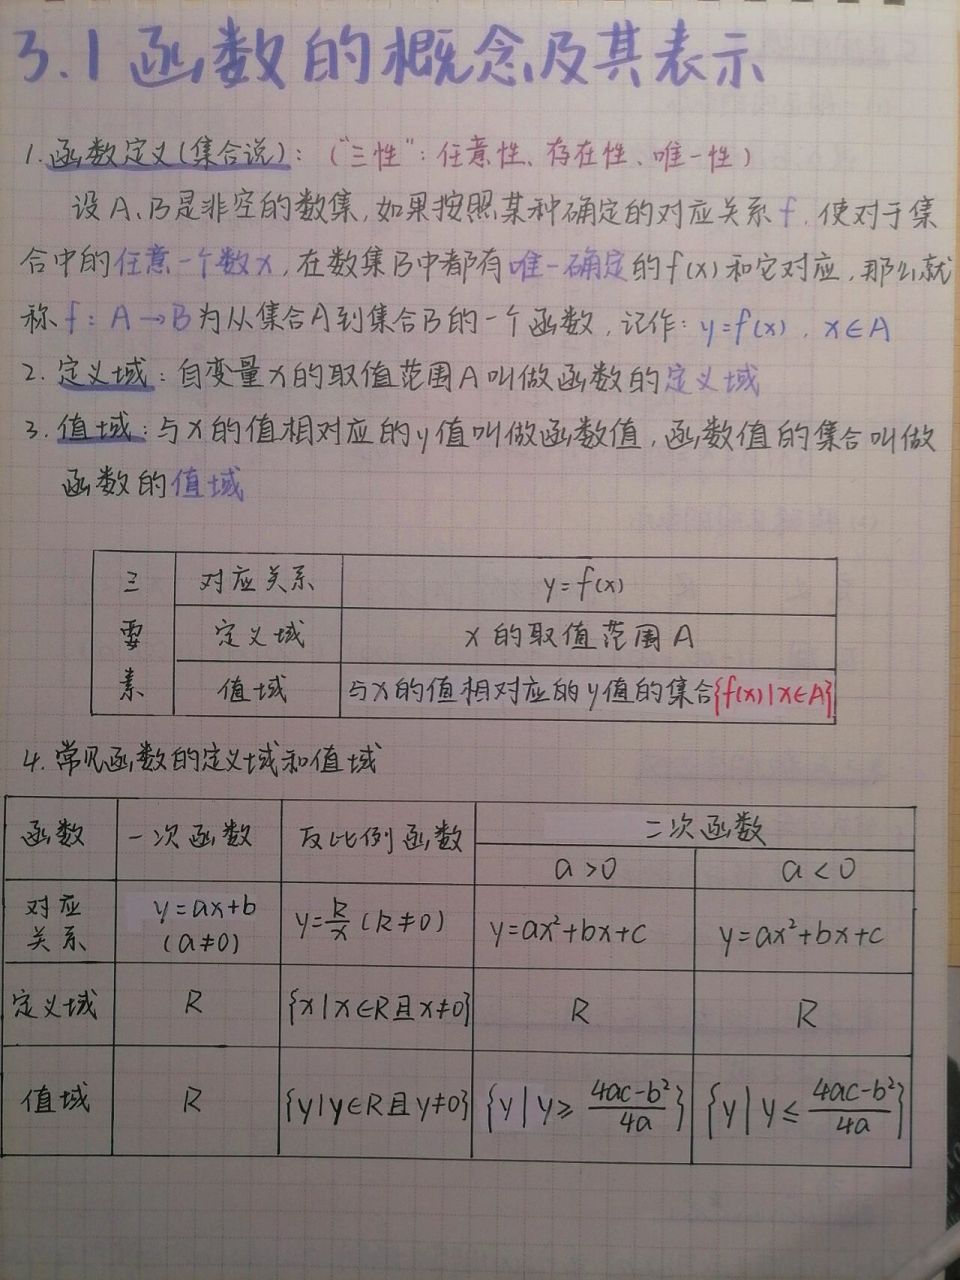 3.1 函数的概念及其表示
1. 函数定义(集合说):("三性":任意性、存在性、唯一性)
设A、B是非空的数集,如果按照某种确定的对应关系f,使对于集
合中的任意一个数x,在数集B中都有唯一确定的f(x)和它对应,那么就
称f:A→B为从集合A到集合B的一个函数,记作:y=f(x),x∈A
2. 定义域:自变量x的取值范围A叫做函数的定义域
3. 值域:与x的值相对应的y值叫做函数值,函数值的集合叫做
函数的值域
三要素
对应关系 y=f(x)
定义域 x的取值范围A
值域 与x的值相对应的y值的集合{f(x)|x∈A}
4. 常见函数的定义域和值域
函数 一次函数 反比例函数 二次函数
a>0 a<0
对应关系 y=ax+b (a≠0) y=k/x (k≠0) y=ax²+bx+c y=ax²+bx+c
定义域 R {x|x∈R且x≠0} R R
值域 R {y|y∈R且y≠0} {y|y≥(4ac-b²)/4a} {y|y≤(4ac-b²)/4a}